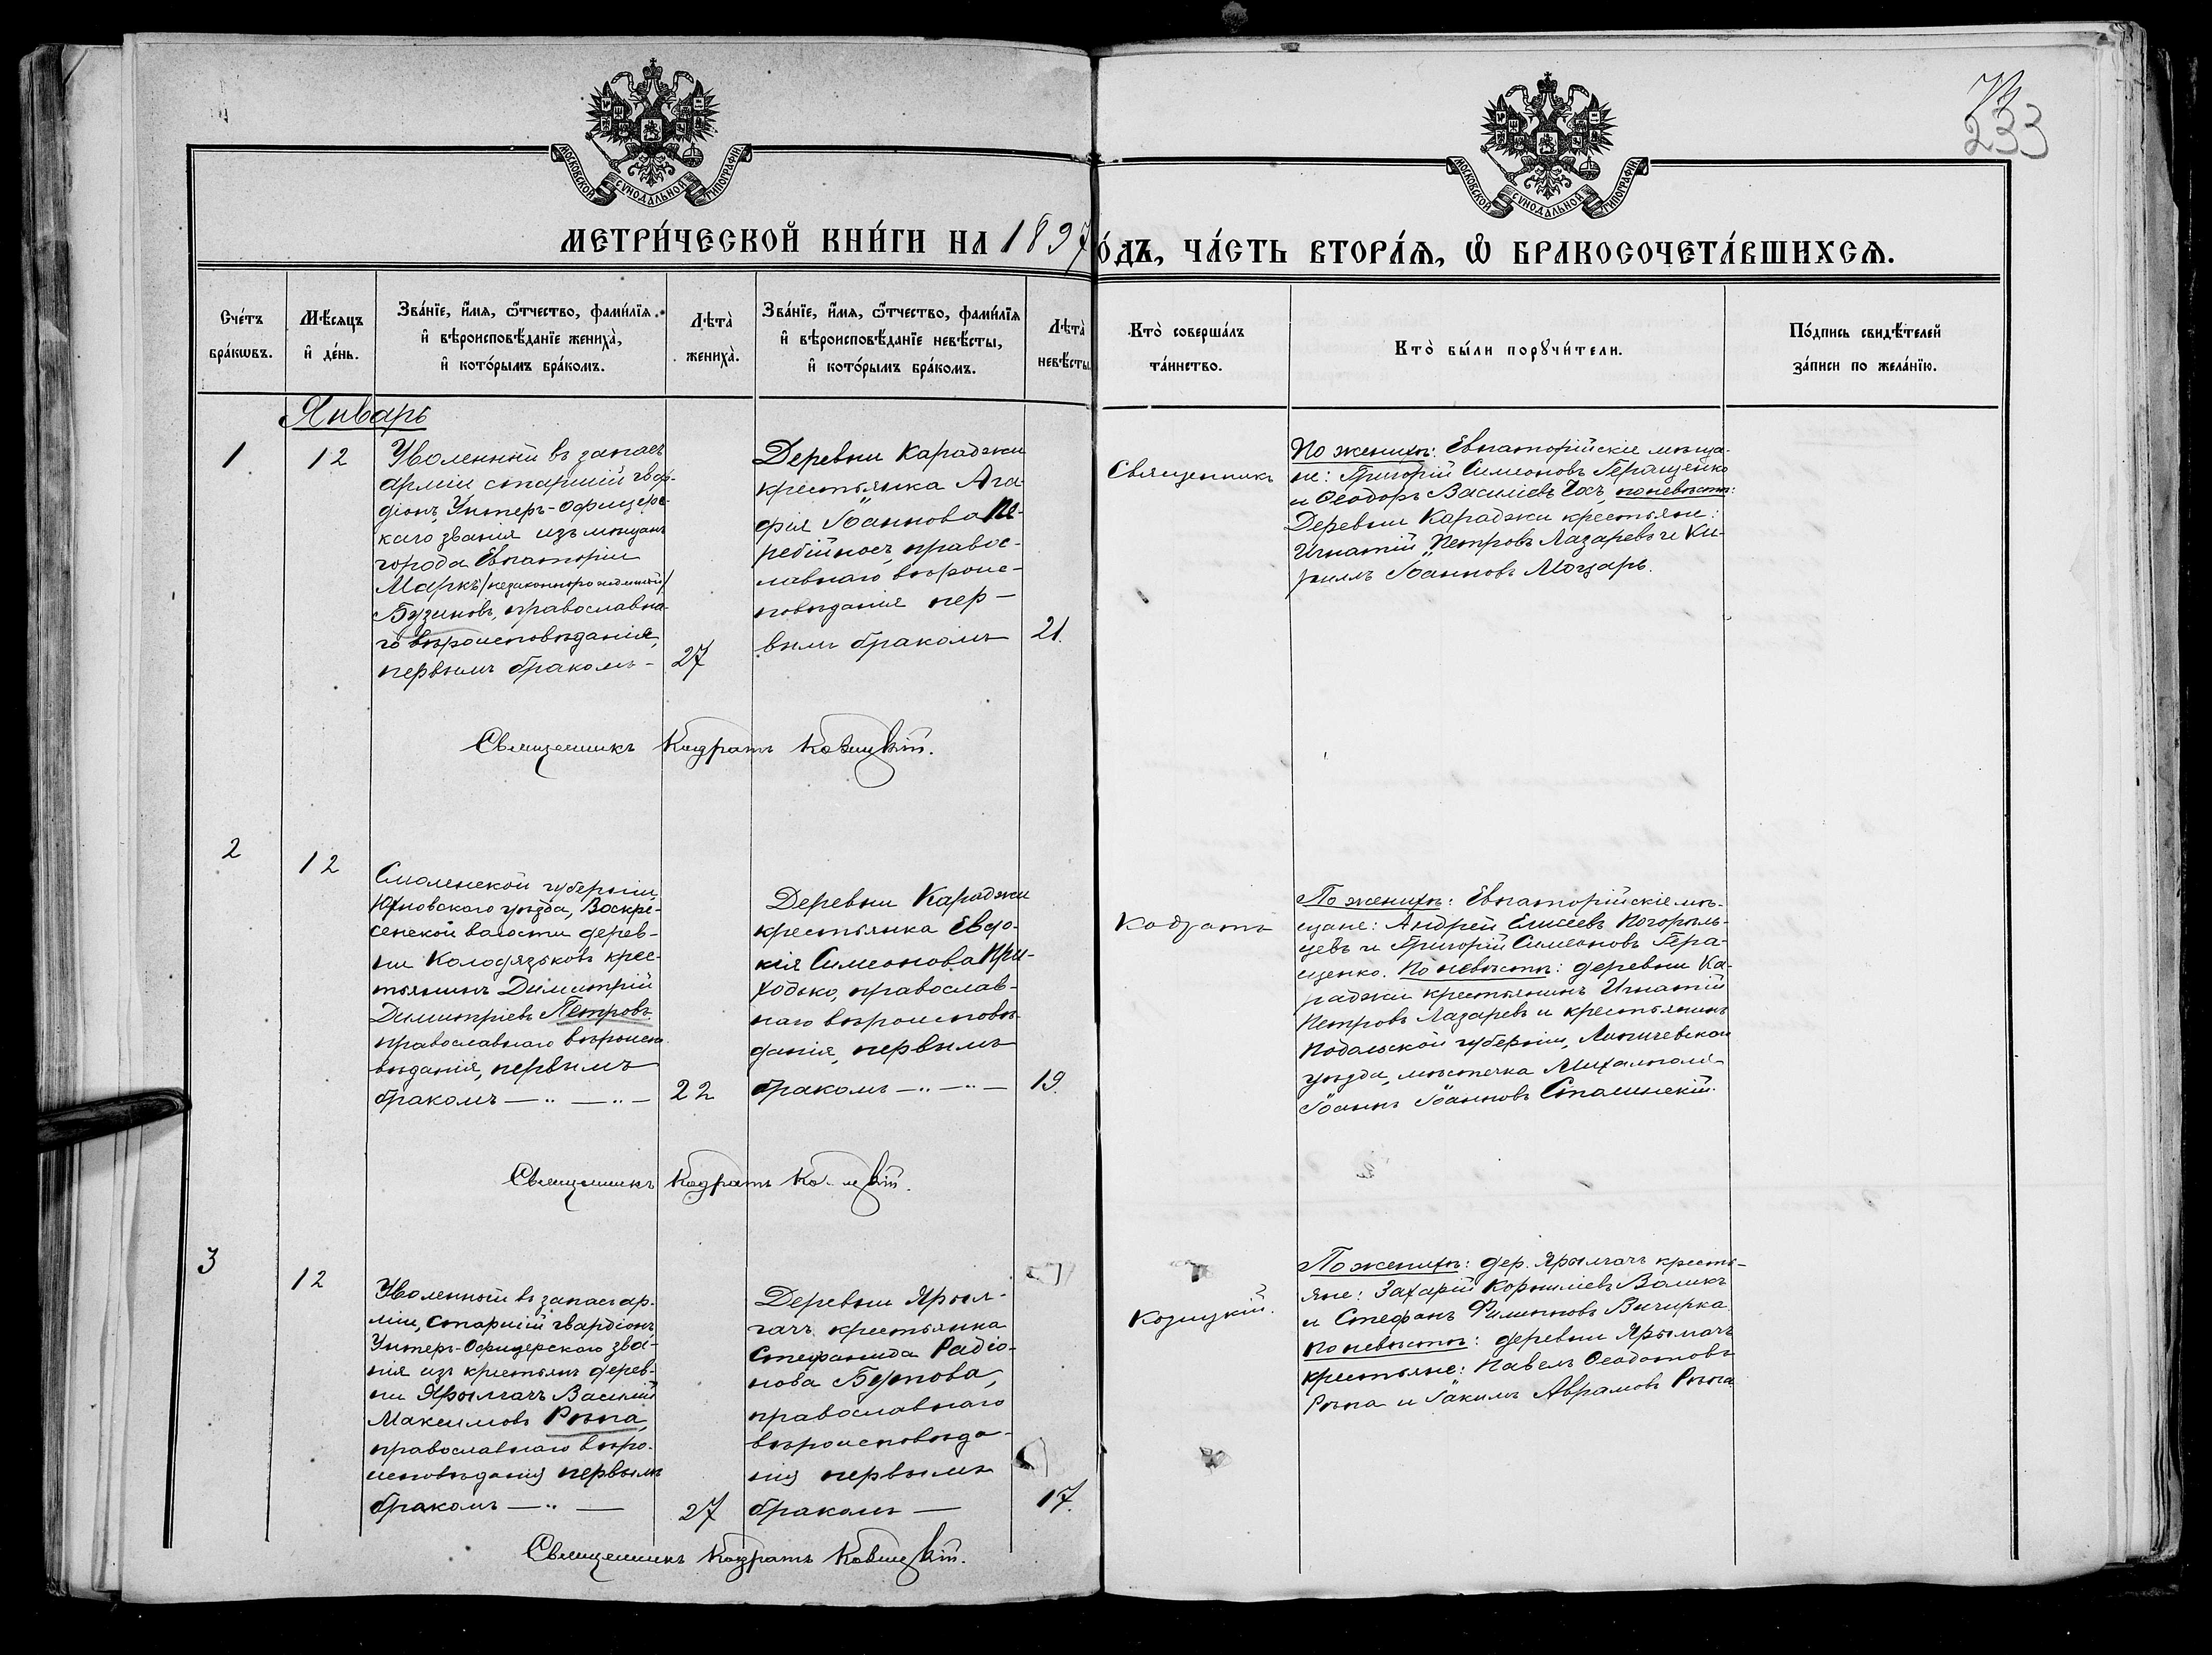 233
МОСКОВСКОЙ СѴНОДАЛЬНОЙ ТИПОГРАФІИ
МОСКОВСКОЙ СѴНОДАЛЬНОЙ ТИПОГРАФІИ
МЕТРИ́ЧЕСКОЙ КНИ́ГИ НА 1897
О́ДЪ, ЧА́СТЬ ВТОРА́Ѧ, Ѽ БРАКОСОЧЕТА́ВШИХСѦ.
Сче́тъ
бра́кѡвъ.
Мѣ́сяцъ
и҆ де́нь.
Зва́нїе, и҆́мѧ, ѻ҆́тчество, фами́лїѧ
и҆ вѣроисповѣ́данїе жениха̀,
и҆ кото́рымъ бра́комъ.
Лѣта̀
жениха̀.
Зва́нїе, и҆́мѧ, ѻ҆́тчество, фами́лїѧ
и҆ вѣроисповѣ́данїе невѣ́сты,
и҆ кото́рымъ бра́комъ.
Лѣта̀
невѣ́сты
Кто̀ соверша́лъ
та́инство.
Кто̀ бы́ли порꙋчи́тели.
По́дпись свидѣ́телей
за́писи по жела́нїю.
Январь
1.
12
Уволенный въ запасъ
арміи старшій гвар-
діонъ, Унтеръ-Офицерс-
каго званія изъ мѣщанъ
города Евпаторіи
Маркъ /незаконнорожденный/
Бузиновъ, православна-
го вѣроисповѣданія,
первымъ бракомъ -
27
Деревни Караджи
крестьянка Ага-
фія Іоаннова Пе-
ребійносъ, правос-
лавнаго вѣроис-
повѣданія пер-
вымъ бракомъ
21.
Священникъ
По женихѣ: Евпаторійскіе мѣща-
не: Григорій Симеоновъ Геращенко
и Ѳеодоръ Василіевъ по невѣстѣ:
Деревни Караджи крестьяне:
Игнатій Петровъ Лазаревъ и Ки-
риллъ Іоанновъ Моцарь.
Священникъ Кодратъ Козицкій.
2
12
Смоленской губерніи,
Юхновскаго уѣзда, Воскре-
сенской волости дерев-
ни Колодязьковъ крес-
тьянинъ Димитрій
Димитріевъ Петровъ
православнаго вѣроиспо
вѣданія, первымъ
бракомъ — " — " —
22
Деревни Караджи
крестьянка Евдо-
кія Симеонова При-
ходько, православ-
наго вѣроисповѣ
данія, первымъ
бракомъ — " — " —
19.
Кодратъ
По женихѣ: Евпаторійскіе мѣ-
щане: Андрей Елисеевъ Погорѣль-
цевъ и Григорій Симеоновъ Гера-
щенко. По невѣстѣ: деревни Ка-
раджи крестьянинъ Игнатій
Петровъ Лазаревъ и крестьянинъ
Подольской губерніи, Литичевскаго
уѣзда, мѣстечка Михалполя
Іоаннъ Іоанновъ Сталинскій.
Священникъ Кодратъ Козицкій.
3
12
Уволенный въ запасъ ар-
міи, старшій гвардіонъ
Унтеръ-Офицерскаго зва-
нія изъ крестьянъ дерев-
ни Ярылгачъ Василій
Максимовъ Рѣпа,
православнаго вѣро-
исповѣданія первымъ
бракомъ — " —
27
Деревни Ярыл-
гачъ крестьянка
Стефанида Радіо-
нова
православнаго
вѣроисповѣда-
нія первымъ
бракомъ —
17.
Козицкій.
По женихѣ: дер. Ярылгачъ кресть-
яне: Захарій Корниліевъ Воликъ
и Стефанъ Филипповъ Вичирка
По невѣстѣ: деревни Ярылгачъ
крестьяне: Павелъ Ѳеодотовъ
Рѣпа и Іакимъ Аврамовъ Рѣпа
Священникъ Кодратъ Козицкій.